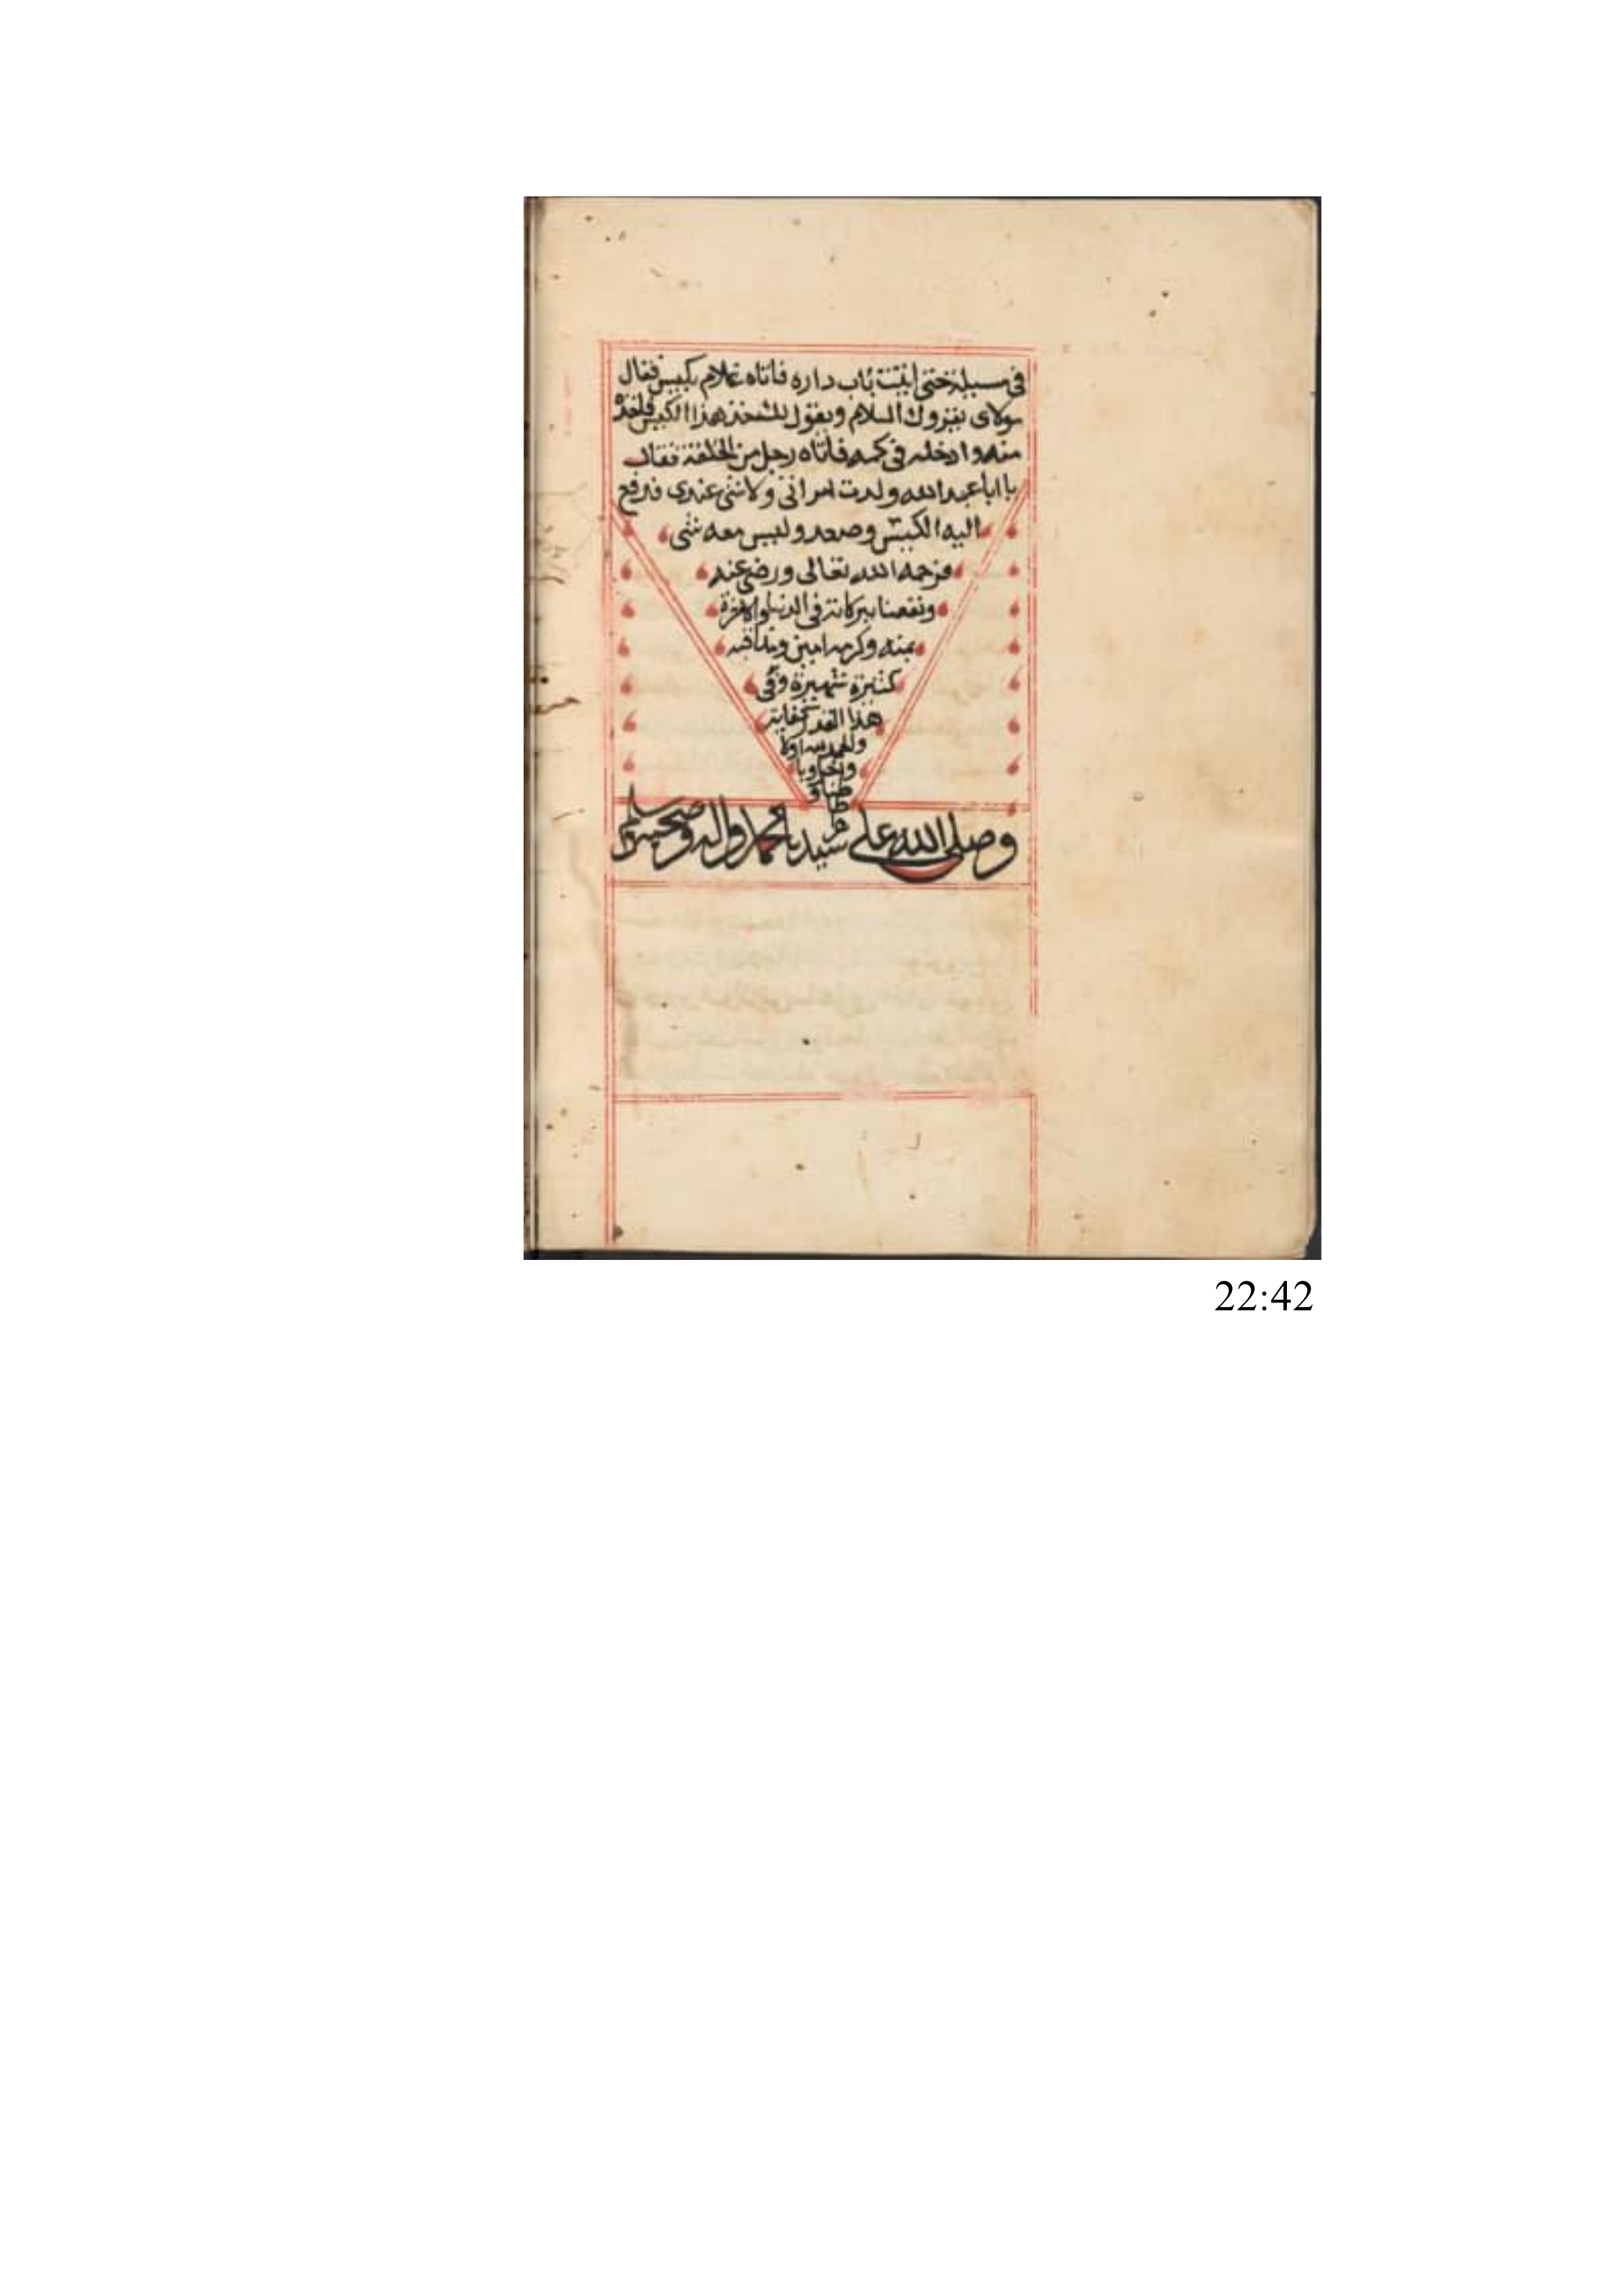 في مسيله حتى اتيت باب داره فاتاه غلام بكيس فقال
مولاى يقروك السلام ويقول لك خذ هذا الكيس فاخذه
منه وادخله فى كمه فاتاه رجل من الحلقة فقال
يا ابا عبد الله ولدت امراتى ولا شئ عندى فدفع
اليه الكيس وصعد وليس معه شئ
فرحمه الله تعالى ورضى عنه
ونفعنا ببركاته فى الدنيا والاخرة
بمنه وكرمه امين ومناقبه
كثيرة شهيرة وفى
هذا القدر كفاية
والحمد لله اولا
واخرا وبا
طنا و
ظا
هر
وصلى الله على سيدنا محمد واله وصحبه وسلم
22:42